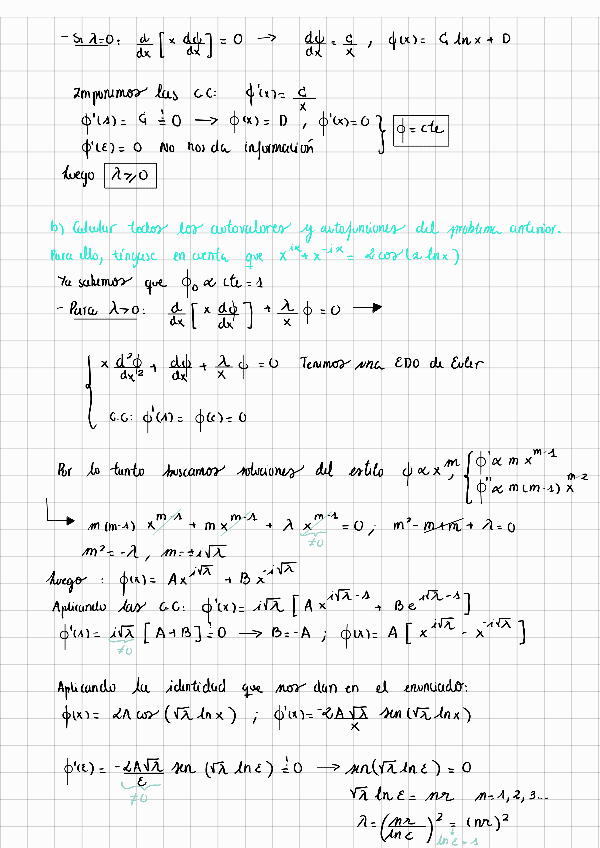 - Si λ=0: d/dx [x dϕ/dx] = 0 → dϕ/dx = C/x , ϕ(x) = C ln x + D
Imponemos las C.C: ϕ'(x) = C/x
ϕ'(1) = C = 0 → ϕ(x) = D , ϕ'(x) = 0 } ϕ = cte
ϕ'(ε) = 0 No nos da información
luego λ ≥ 0
b) Calcular todos los autovalores y autofunciones del problema anterior.
Para ello, téngase en cuenta que x^{iα} + x^{-iα} = 2cos(α ln x)
Ya sabemos que ϕ₀ ∝ cte = 1
- Para λ>0: d/dx [x dϕ/dx] + λ/x ϕ = 0 →
x d²ϕ/dx² + dϕ/dx + λ/x ϕ = 0 Tenemos una EDO de Euler
C.C: ϕ'(1) = ϕ(ε) = 0
Por lo tanto buscamos soluciones del estilo ϕ ∝ x^m, { ϕ' ∝ m x^{m-1}
ϕ'' ∝ m(m-1) x^{m-2}
m(m-1) x^{m-1} + m x^{m-1} + λ x^{m-1} = 0 ; m² - m + m + λ = 0
≠0
m² = -λ , m = ±i√λ
luego : ϕ(x) = A x^{i√λ} + B x^{-i√λ}
Aplicando las C.C: ϕ'(x) = i√λ [A x^{i√λ-1} + B e^{-i√λ-1}]
ϕ'(1) = i√λ [A+B] = 0 → B = -A ; ϕ(x) = A [x^{i√λ} - x^{-i√λ}]
≠0
Aplicando la identidad que nos dan en el enunciado:
ϕ(x) = 2A cos (√λ ln x) ; ϕ'(x) = -2A√λ/x sen (√λ ln x)
ϕ'(ε) = -2A√λ/ε sen (√λ ln ε) = 0 → sen(√λ ln ε) = 0
≠0
√λ ln ε = nπ n = 1, 2, 3...
λ = (nπ/ln ε)² = (nπ)²
ln ε = 1